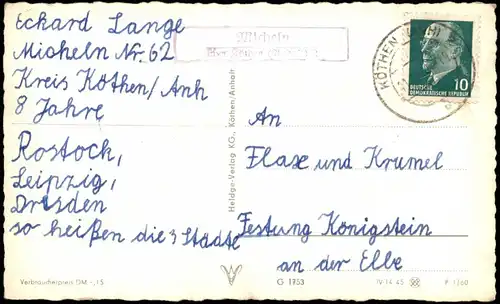 Eckard Lange
Micheln Nr. 62
Kreis Köthen/Anh
8 Jahre
Rostock,
Leipzig,
Dresden
so heißen die 3 Städte
Micheln
KÖTHEN
10
DEUTSCHE
DEMOKRATISCHE REPUBLIK
An
Flaxe und Krümel
Festung Königstein
an der Elbe
Heldge-Verlag KG., Köthen/Anhalt
Verbraucherpreis DM -,15
G 1753
IV-14-45
P 1/60